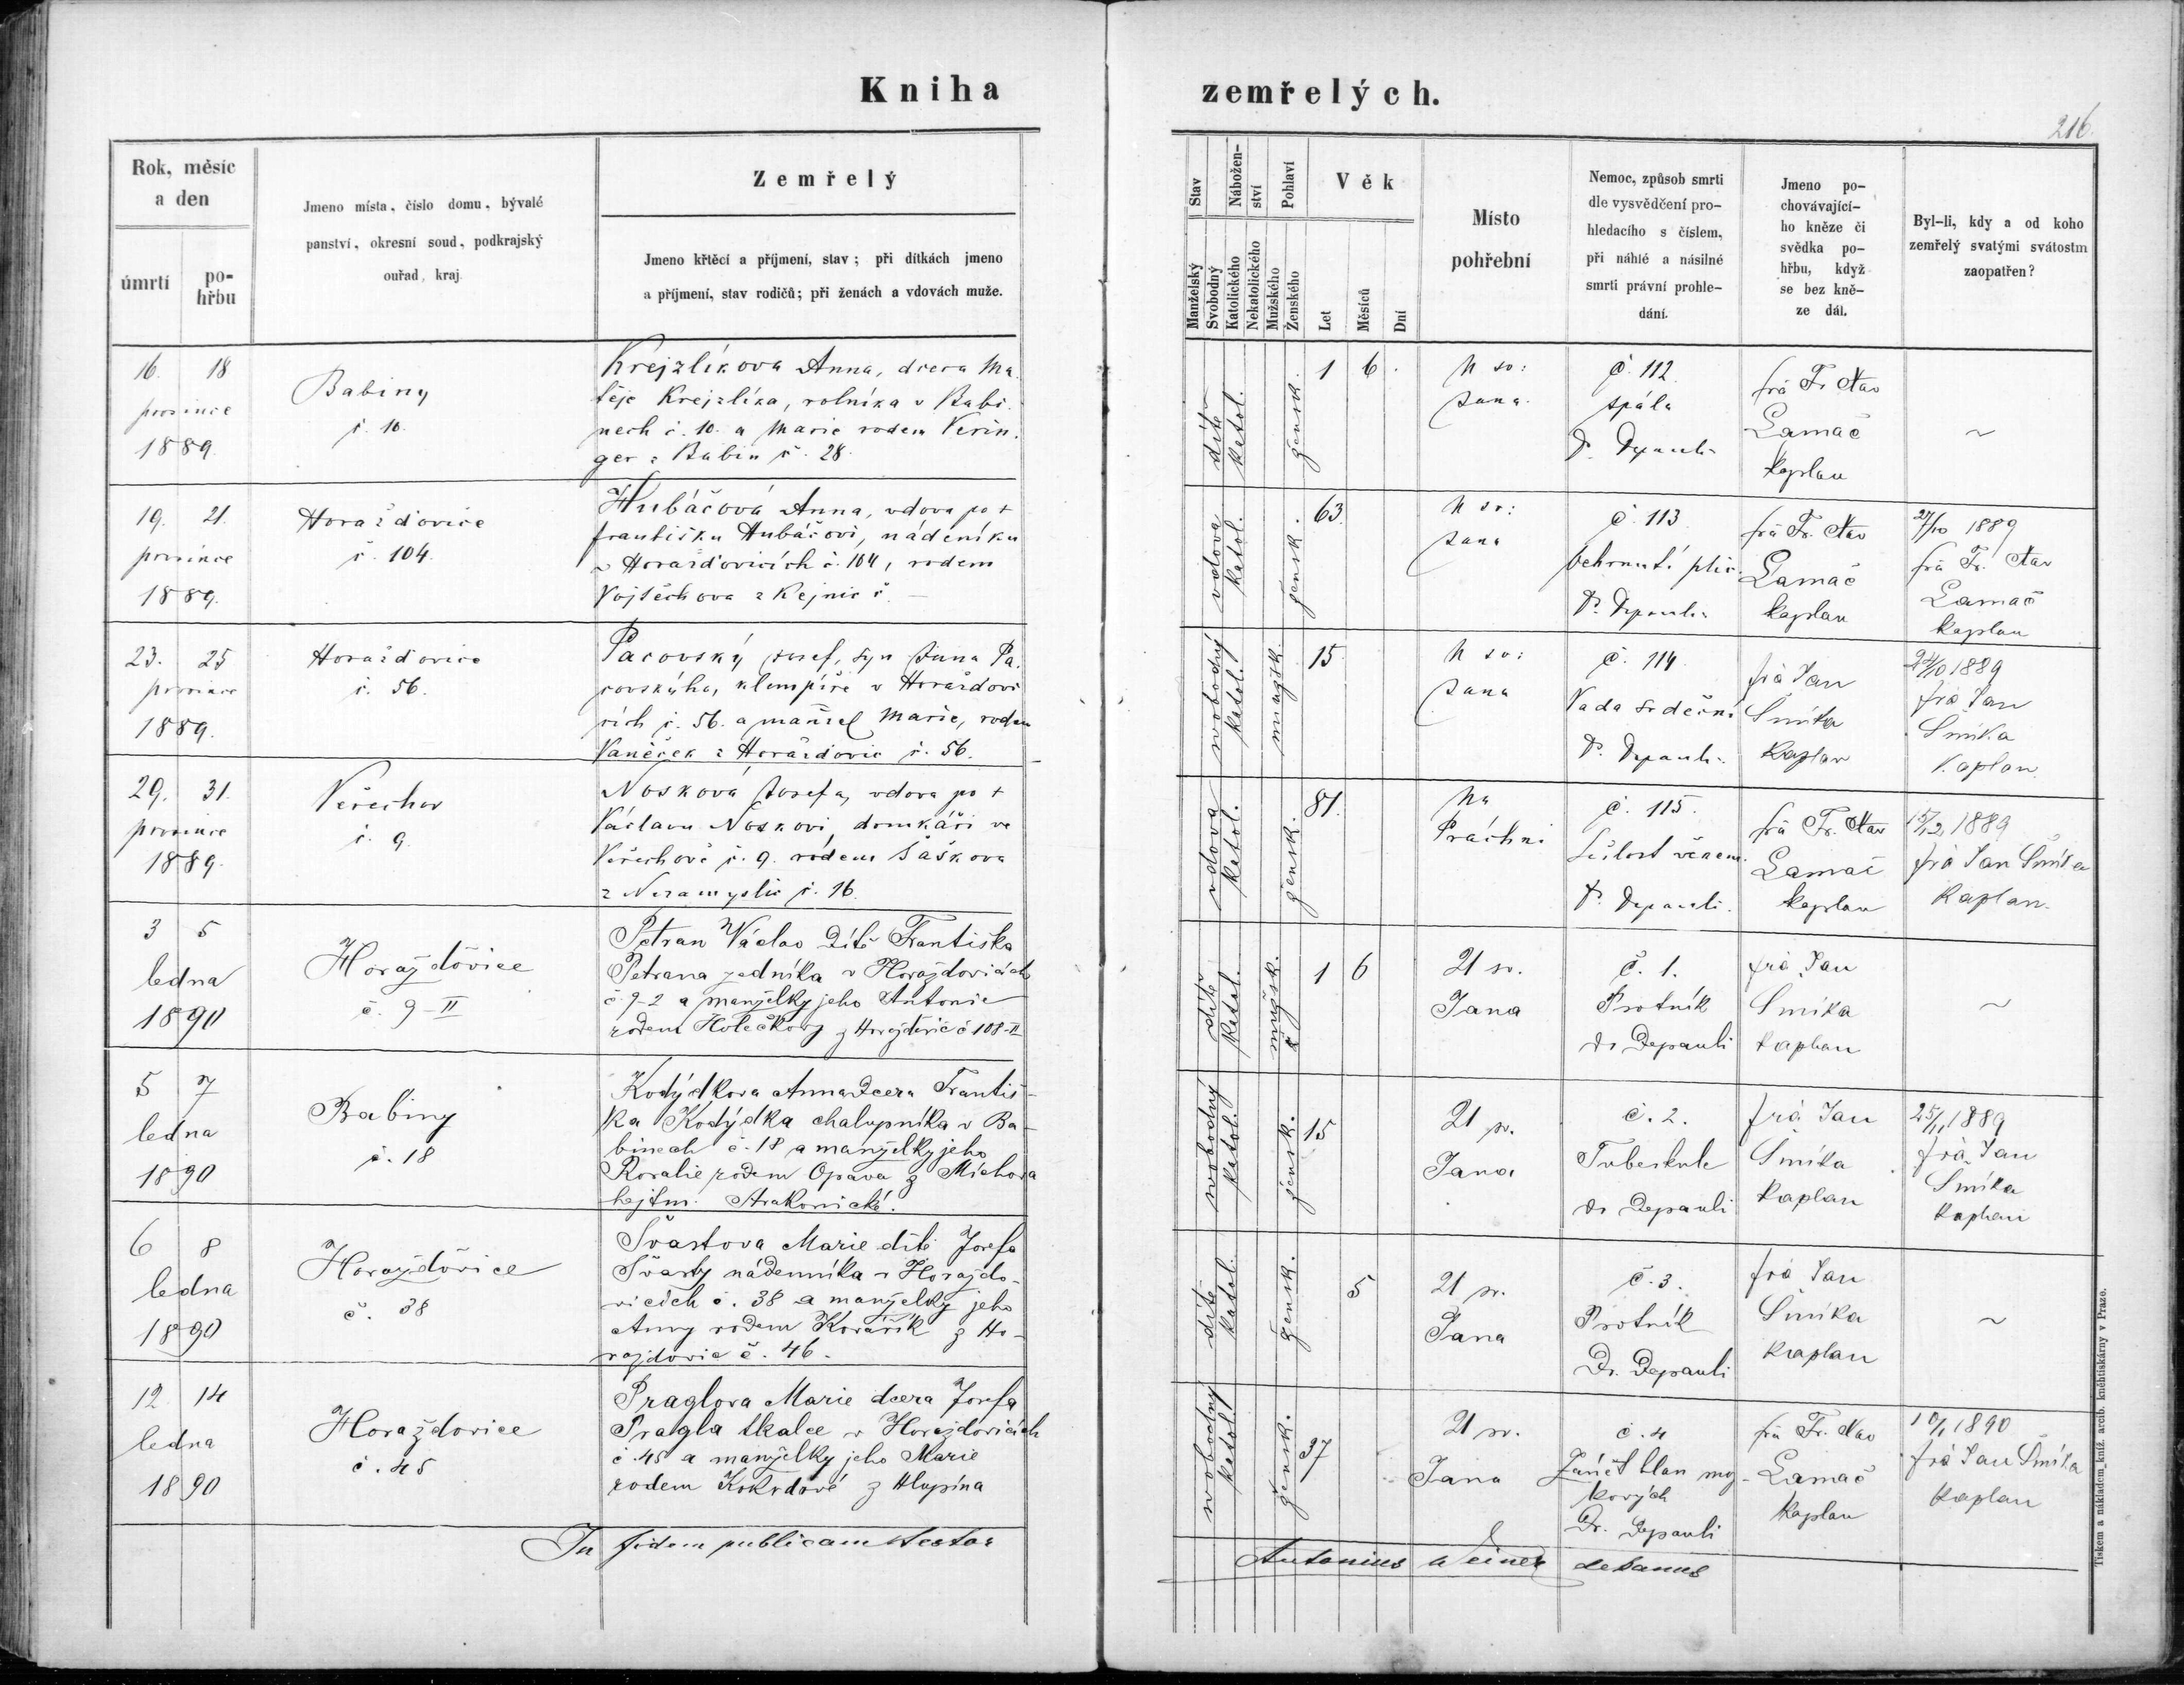 Kniha
zemřelých.
216.
Rok, měsíc
a den
úmrtí
po-
hřbu
Jmeno místa, číslo domu, bývalé
panství, okresní soud, podkrajský
ouřad, kraj.
Zemřelý
Jmeno křtěcí a příjmení, stav; při dítkách jmeno
a příjmení, stav rodičů; při ženách a vdovách muže.
Stav
Manželský
Svobodný
Nábožen-
ství
Katolického
Nekatolického
Pohlaví
Mužského
Ženského
Věk
Let
Měsíců
Dní
Místo
pohřební
Nemoc, způsob smrti
dle vysvědčení pro-
hledacího s číslem,
při náhlé a násilné
smrti právní prohle-
dání.
Jmeno po-
chovávající-
ho kněze či
svědka po-
hřbu, když
se bez kně-
ze dál.
Byl-li, kdy a od koho
zemřelý svatými svátostm
zaopatřen?
16. 18
prosince
1889.
Babiny
č. 10.
Krejzlíkova Anna, dcera Ma
těje Krejzlíka, rolníka v Babi
nech č. 10. a Marie rodem Verin
ger z Babin č. 28.
dítě
katol.
žensk.
1 6
U sv:
Jana
č. 112
spála
Dr Depauli
frà Fr. Nav
Lamač
kaplan
~
19. 21.
prosince
1889.
Horažďovice
č. 104.
Hubáčová Anna, vdova po +
františku Hubáčovi, nádeníku
v Horažďovicích č. 104, rodem
Vojtěchova z Kejnic č. –
vdova
katol.
žensk.
63.
U sv:
Jana
č. 113
ochrnutí plic.
Dr. Depauli
frà Fr. Nav
Lamač
kaplan
27/10 1889
frà Fr. Nav
Lamač
kaplan
23. 25
prosince
1889.
Horažďovice
č. 56.
Pacovský Josef, syn Jana Pa
covského, klempíře v Horažďovi
cích č. 56. a manžel Marie, rodem
Vaněček z Horažďovic č. 56.
svobodný
katol.
mužsk.
15
U sv:
Jana
č. 114
Vada srdeční
Dr. Depauli
frà Jan
Šmíka
kaplan
1889
frà Jan
Šmíka
kaplan
29. 31.
prosince
1889.
Veřechov
č. 9.
Nosková Josefa, vdova po +
Václavu Noskovi, domkáři ve
Veřechově č. 9. rodem Šaškova
z Nezamyslic č. 16.
vdova
katol.
žensk.
81.
Na
Práchni
č. 115.
Sešlost věkem.
Dr. Depauli.
frà Fr. Nav
Lamač
kaplan
15/12 1889
frà Jan Šmíka
kaplan.
3 5
ledna
1890
Horažďovice
č. 9-II
Petran Václav Dítě Františka
Petrana zedníka v Horažďovicích
č. 9-2 a manželky jeho Antonie
rodem Holečkovy z Horažďovic č 108-II
dítě
katol.
mužsk.
1 6
U sv.
Jana
č. 1.
Protník
Dr Depauli
frà Jan
Šmíka
kaplan
~
5 7
ledna
1890
Babiny
č. 18
Kodýdkova Anna Dcera Františ-
ka Kodýdka chalupníka v Ba-
binech č. 18 a manželky jeho
Rosalie rodem Opava z Míchova
hejtm. Strakonické.
svobodný
katol.
žensk.
15
U sv.
Jana
č. 2.
Tuberkule
Dr Depauli
frà Jan
Šmíka
kaplan
25/11 1889
frà Jan
Šmíka
kaplan
6 8
ledna
1890
Horažďovice
č. 38
Švastova Marie dítě Josefa
Švasty nádenníka v Horažďo-
vicích č. 38 a manželky jeho
Anny rodem Kovářík z Ho-
ražďovic č. 46.
dítě
katol.
žensk.
5
U sv.
Jana
č. 3.
Protník
Dr. Depauli
frà Jan
Šmíka
kaplan
~
12 14
ledna
1890
Horažďovice
č. 45
Praglova Marie dcera Josefa
Pragla tkalce v Horažďovicích
č. 45 a manželky jeho Marie
rodem z Hlupína
svobodný
katol.
žensk.
37
U sv.
Jana
č. 4
Zánět blan moz-
kových
Dr. Depauli
frà Fr. Nav
Lamač
kaplan
10/1 1890
frà Jan Šmíka
kaplan
In fidem publicam testor
Antonius Weiner decanus
Tiskem a nákladem kníž. arcib. knihtiskárny v Praze.